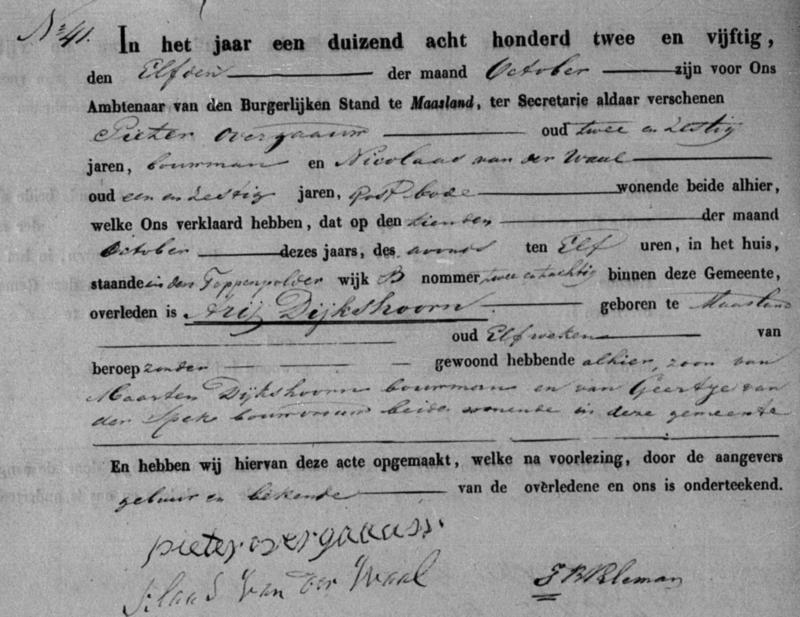 No 41. In het jaar een duizend acht honderd twee en vijftig,
den Elfden der maand October zijn voor Ons
Ambtenaar van den Burgerlijken Stand te Maasland, ter Secretarie aldaar verschenen
Pieter Overgaauw oud twee en zestig
jaren, bouwman en Nicolaas van der Waal
oud een en zestig jaren, post bode wonende beide alhier,
welke Ons verklaard hebben, dat op den tienden der maand
October dezes jaars, des avonds ten Elf uren, in het huis,
staande in den Foppenpolder wijk B nommer twee en tachtig binnen deze Gemeente,
overleden is Arij Dijkshoorn geboren te Maasland
oud Elf weken van
beroep zonder gewoond hebbende alhier, zoon van
Maarten Dijkshoorn bouwman en van Geertje van
der Spek bouwvrouw beide wonende in deze gemeente
En hebben wij hiervan deze acte opgemaakt, welke na voorlezing, door de aangevers
gebuur en bekende van de overledene en ons is onderteekend.
pieter overgaauw.
Klaas Van der Waal